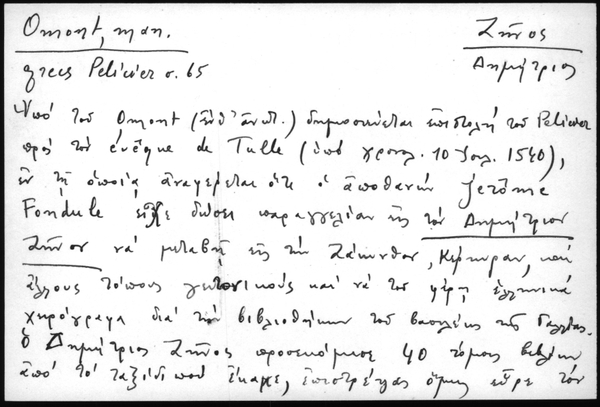 Omont, man. Ζῆνος
grecs Pelicier σ. 65 Δημήτριος
Ὑπό τοῦ Omont (ἐνθ' ἀνωτ.) δημοσιεύεται ἐπιστολή τοῦ Pelicier
πρός τόν évêque de Tulle (ὑπό χρονολ. 10 Ἰουλ. 1540),
ἐν τῇ ὁποίᾳ ἀναφέρεται ὅτι ὁ ἀποθανών Jérôme
Fondule εἶχε δώσει παραγγελίαν εἰς τόν Δημήτριον
Ζῆνον νά μεταβῇ εἰς τήν Ζάκυνθον, Κέρκυραν, καί
ἄλλους τόπους γειτονικούς καί νά τοῦ φέρῃ ἑλληνικά
χειρόγραφα διά τήν βιβλιοθήκην τοῦ βασιλέως τῆς Γαλλίας.
Ὁ Δημήτριος Ζῆνος προσεκόμισε 40 τόμους βιβλίων
ἀπό τό ταξίδι πού ἔκαμε, ἐπιστρέψας ὅμως εὗρε τόν